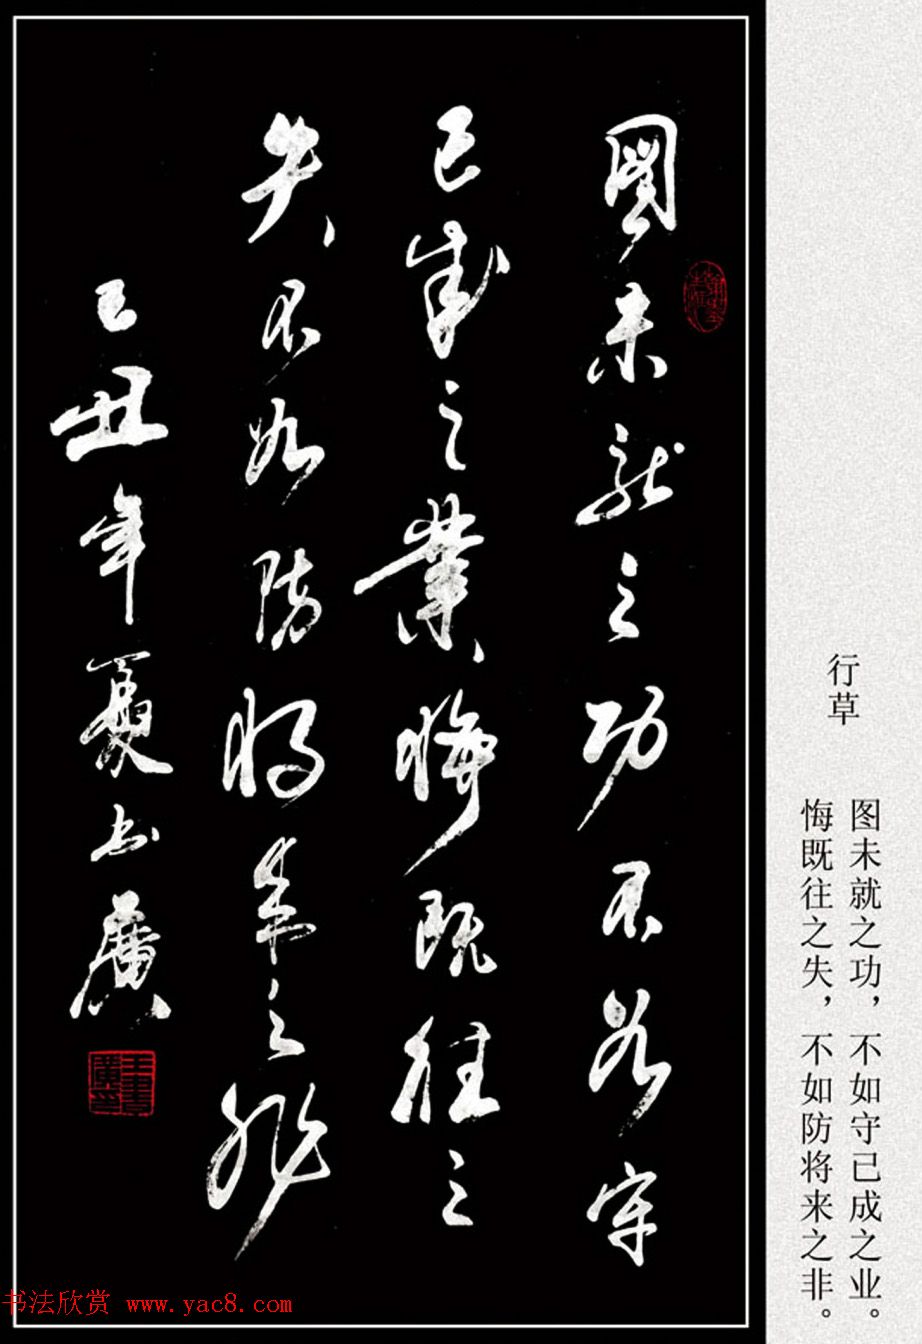 圖未就之功不如守
已成之業悔既往之
失不如防將来之非
己丑年夏书廣
王書廣印
行草
图未就之功，不如守已成之业。
悔既往之失，不如防将来之非。
书法欣赏 www.yac8.com